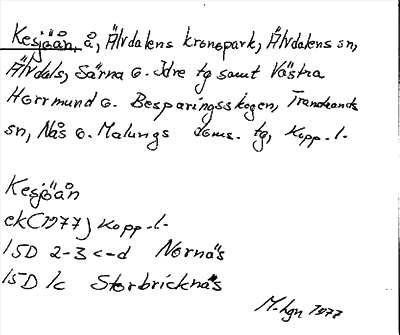 Kesjöån, å, Älvdalens kronopark, Älvdalens sn,
Älvdals, Särna o. Idre tg samt Västra
Horrmund o. Besparingsskogen, Transtrands
sn, Nås o. Malungs doms. tg, Kopp. l.
Kesjöån
ek(1977) Kopp. l.
15D 2-3 c-d Nornäs
15D 1c Storbricknäs
M-hgn 1977